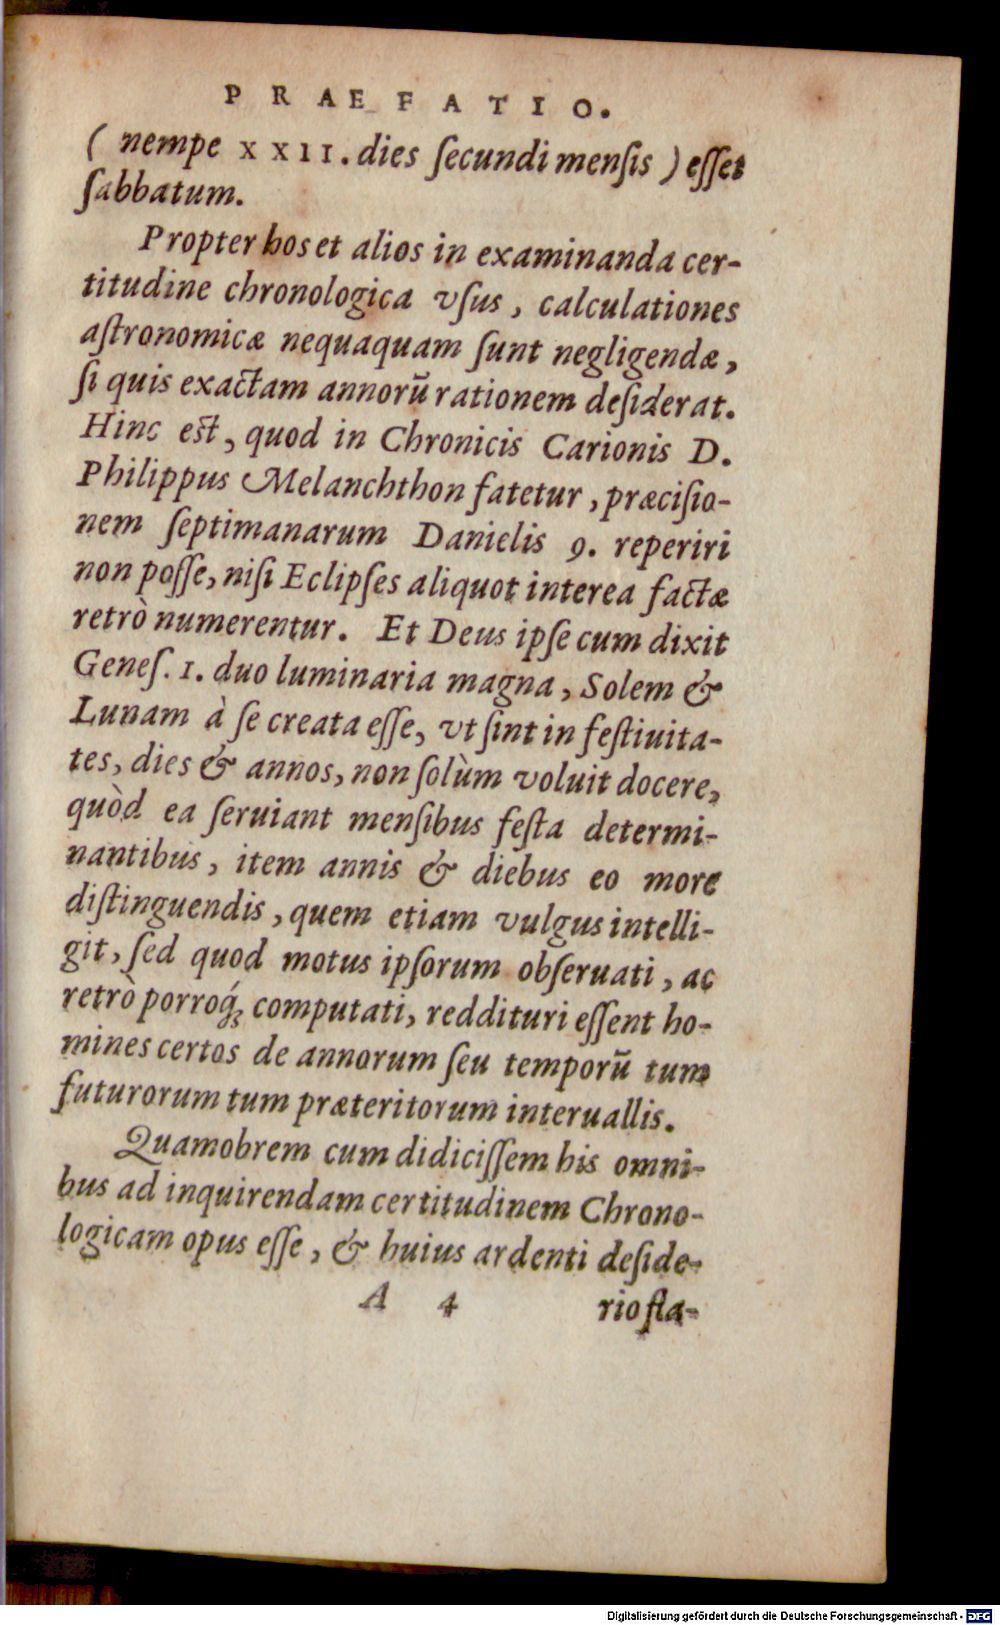 PRAEFATIO.
( nempe XXII. dies ſecundi menſis ) eſſet
ſabbatum.
Propter hos et alios in examinanda cer-
titudine chronologica vſus, calculationes
aſtronomicæ nequaquam ſunt negligendæ,
ſi quis exactam annorũ rationem deſiderat.
Hinc eſt, quod in Chronicis Carionis D.
Philippus Melanchthon fatetur, præciſio-
nem ſeptimanarum Danielis 9. reperiri
non poſſe, niſi Eclipſes aliquot interea factæ
retrò numerentur. Et Deus ipſe cum dixit
Geneſ. 1. duo luminaria magna, Solem &
Lunam à ſe creata eſſe, vt ſint in feſtiuita-
tes, dies & annos, non ſolùm voluit docere,
quòd ea ſeruiant menſibus feſta determi-
nantibus, item annis & diebus eo more
diſtinguendis, quem etiam vulgus intelli-
git, ſed quod motus ipſorum obſeruati, ac
retrò porroq́; computati, reddituri eſſent ho-
mines certos de annorum ſeu temporũ tum
futurorum tum præteritorum interuallis.
Quamobrem cum didiciſſem his omni-
bus ad inquirendam certitudinem Chrono-
logicam opus eſſe, & huius ardenti deſide-
A 4 rio fla-
Digitalisierung gefördert durch die Deutsche Forschungsgemeinschaft - DFG